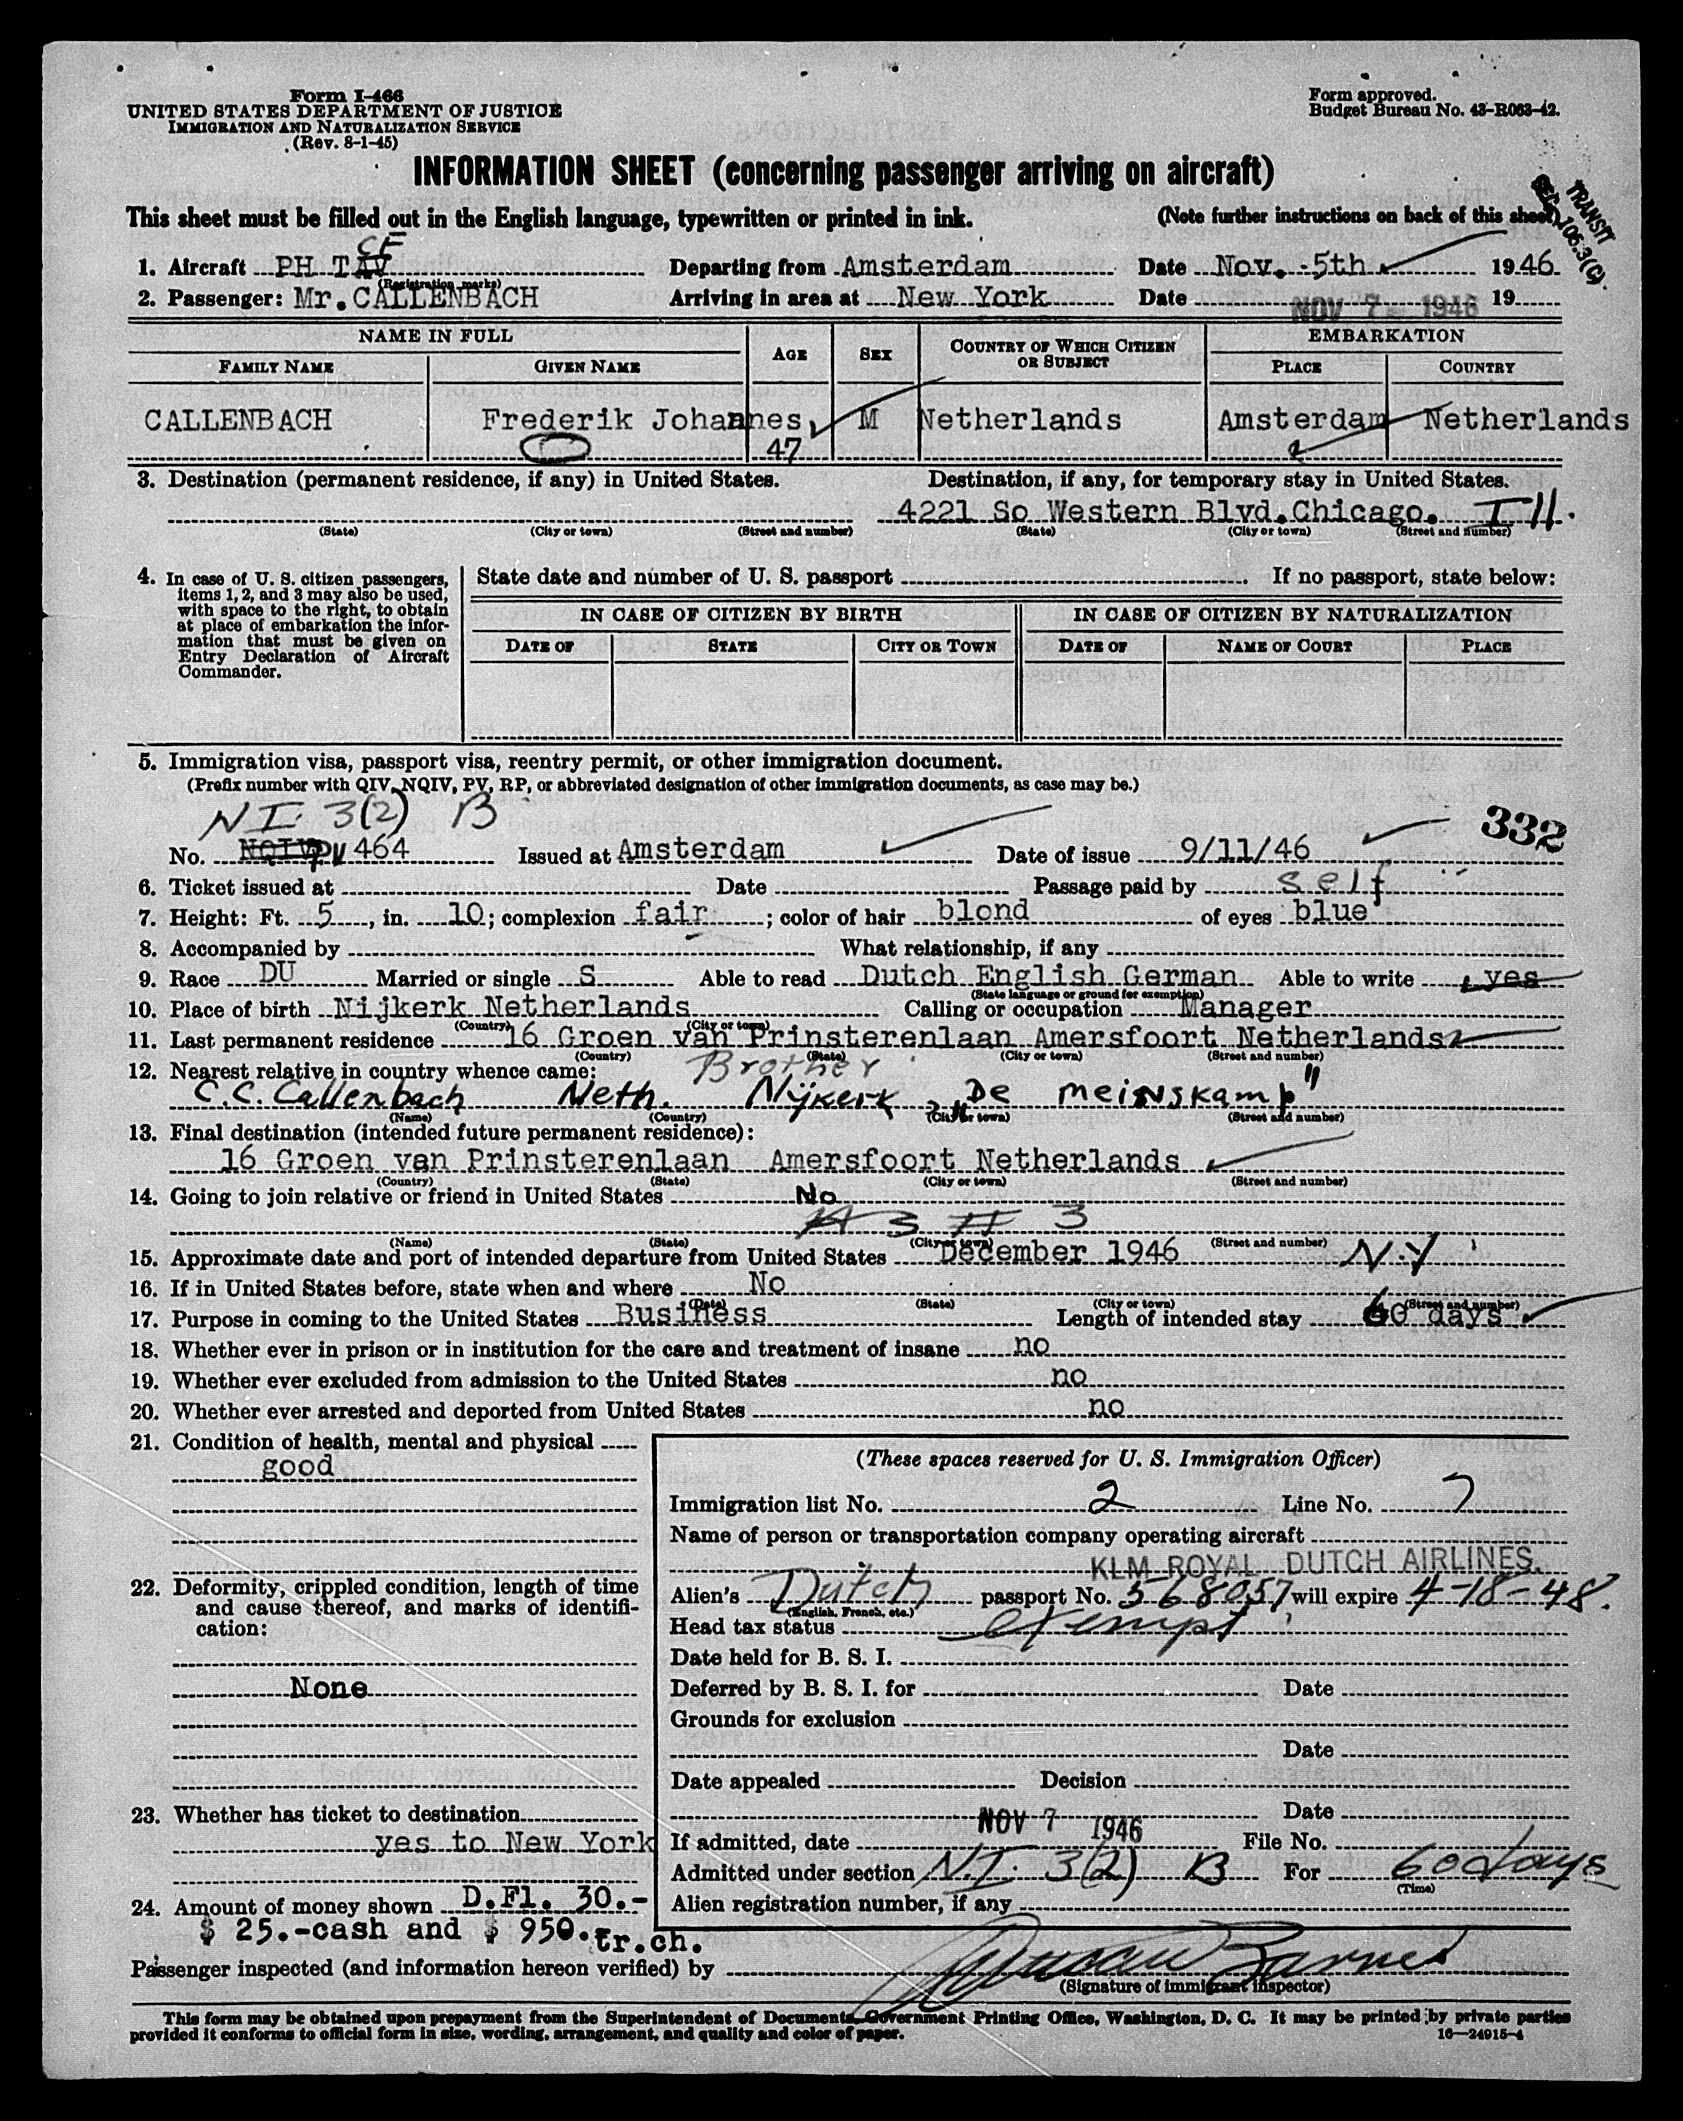 Form I-466
UNITED STATES DEPARTMENT OF JUSTICE
IMMIGRATION AND NATURALIZATION SERVICE
(Rev. 8-1-45)
Form approved.
Budget Bureau No. 43-R063-42.
INFORMATION SHEET (concerning passenger arriving on aircraft)
TRANSIT
SEC. 105.3(C).
This sheet must be filled out in the English language, typewritten or printed in ink. (Note further instructions on back of this sheet)
CF
1. Aircraft PH TAV Departing from Amsterdam Date Nov. 5th 1946
(Registration marks)
2. Passenger: Mr. CALLENBACH Arriving in area at New York Date NOV 7 - 1946 19
NAME IN FULL AGE SEX COUNTRY OF WHICH CITIZEN OR SUBJECT EMBARKATION
FAMILY NAME GIVEN NAME PLACE COUNTRY
CALLENBACH Frederik Johannes, M Netherlands Amsterdam Netherlands
47
3. Destination (permanent residence, if any) in United States. Destination, if any, for temporary stay in United States.
4221 So Western Blvd. Chicago. Ill.
(State) (City or town) (Street and number) (State) (City or town) (Street and number)
4. In case of U. S. citizen passengers, items 1, 2, and 3 may also be used, with space to the right, to obtain at place of embarkation the information that must be given on Entry Declaration of Aircraft Commander.
State date and number of U. S. passport If no passport, state below:
IN CASE OF CITIZEN BY BIRTH IN CASE OF CITIZEN BY NATURALIZATION
DATE OF STATE CITY OR TOWN DATE OF NAME OF COURT PLACE
5. Immigration visa, passport visa, reentry permit, or other immigration document.
(Prefix number with QIV, NQIV, PV, RP, or abbreviated designation of other immigration documents, as case may be.)
N I 3(2) B
332
No. NQIV PV 464 Issued at Amsterdam Date of issue 9/11/46
6. Ticket issued at Date Passage paid by self
7. Height: Ft. 5, in. 10; complexion fair; color of hair blond of eyes blue
8. Accompanied by What relationship, if any
9. Race DU Married or single S Able to read Dutch English German Able to write yes
(State language or ground for exemption)
10. Place of birth Nijkerk Netherlands Calling or occupation Manager
(Country) (City or town)
11. Last permanent residence 16 Groen van Prinsterenlaan Amersfoort Netherlands
(Country) (State) (City or town) (Street and number)
12. Nearest relative in country whence came: Brother
C.C. Callenbach Neth. Nijkerk "De meinskamp"
(Name) (Country) (City or town) (Street and number)
13. Final destination (intended future permanent residence):
16 Groen van Prinsterenlaan Amersfoort Netherlands
(Country) (State) (City or town) (Street and number)
14. Going to join relative or friend in United States No
3 3
(Name) (State) (City or town) (Street and number)
15. Approximate date and port of intended departure from United States December 1946 N.Y
16. If in United States before, state when and where No
(Date) (State) (City or town) (Street and number)
17. Purpose in coming to the United States Business Length of intended stay 60 days
18. Whether ever in prison or in institution for the care and treatment of insane no
19. Whether ever excluded from admission to the United States no
20. Whether ever arrested and deported from United States no
21. Condition of health, mental and physical
good
22. Deformity, crippled condition, length of time and cause thereof, and marks of identification:
None
23. Whether has ticket to destination
yes to New York
24. Amount of money shown D.Fl. 30.-
$ 25.-cash and $ 950. tr.ch.
(These spaces reserved for U. S. Immigration Officer)
Immigration list No. 2 Line No. 7
Name of person or transportation company operating aircraft
KLM ROYAL DUTCH AIRLINES.
Alien's Dutch passport No. 568057 will expire 4-18-48.
(English, French, etc.)
Head tax status exempt
Date held for B. S. I.
Deferred by B. S. I. for Date
Grounds for exclusion
Date
Date appealed Decision
Date
If admitted, date NOV 7 1946 File No.
Admitted under section N.I. 3(2) B For 60 days
(Time)
Alien registration number, if any
Passenger inspected (and information hereon verified) by
(Signature of immigrant inspector)
This form may be obtained upon prepayment from the Superintendent of Documents, Government Printing Office, Washington, D. C. It may be printed by private parties
provided it conforms to official form in size, wording, arrangement, and quality and color of paper. 16—24915-4